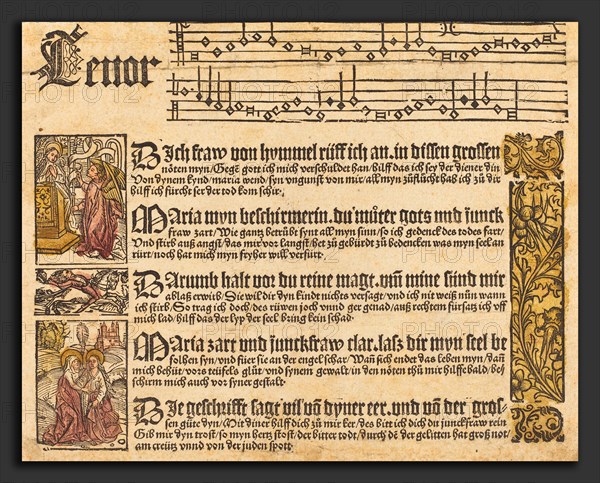 Tenor
Dich fraw von hymmel rüff ich an, in dissen grossen
nöten myn/Gegē gott ich mich verschuldet han/hilff das ich sey der diener din
Von dynem kynd/maria wend/syn vngunst von mir/all myn zůflůcht hab ich zů dir
hilff ich fürcht ser der tod kom schir.
Maria myn beschirmerin. du můter gots vnd junck
fraw zart/Wie gantz betrübt synt all myn sinn/so ich gedenck des todes fart/
Vnd stirb auß angst/das mir vor langst/het zů gebürdt zů bedencken was myn seel an
rürt/noch hat mich myn fryher will verfürt.
Darumb halt vor du reine magt. vm̄ mine sünd mir
ablaß erwirb/Sie wil dir dyn kindt nichts versagt/vnd ich nit weiß nün wann
ich stirb/So trag ich doch/des rüwen joch vnnd ger genad/auß rechtem fürsatz ich off
mich lad/hilff das der lyp der seel bring kein schad.
Maria zart vnd junckfraw clar. lasz dir myn seel be
folhen syn/vnd füer sie an der engel schar/Wañ sich endet das leben myn/dañ
mich behüt/vors teüfels glüt/vnd synem gewalt/in den nöten thů mir hilffe bald/be/
schirm mich auch vor syner gestalt.
Die geschrifft sagt vil võ dyner eer. vnd võ der gros-
sen güte dyn/Mit diner hilff dich zů mir ker/des bitt ich dich du junckfraw rein
Gib mir dyn trost/so myn hertz stost/der bitter todt/durch dē der gelitten hat groß not/
am creütz vnnd von der juden spott